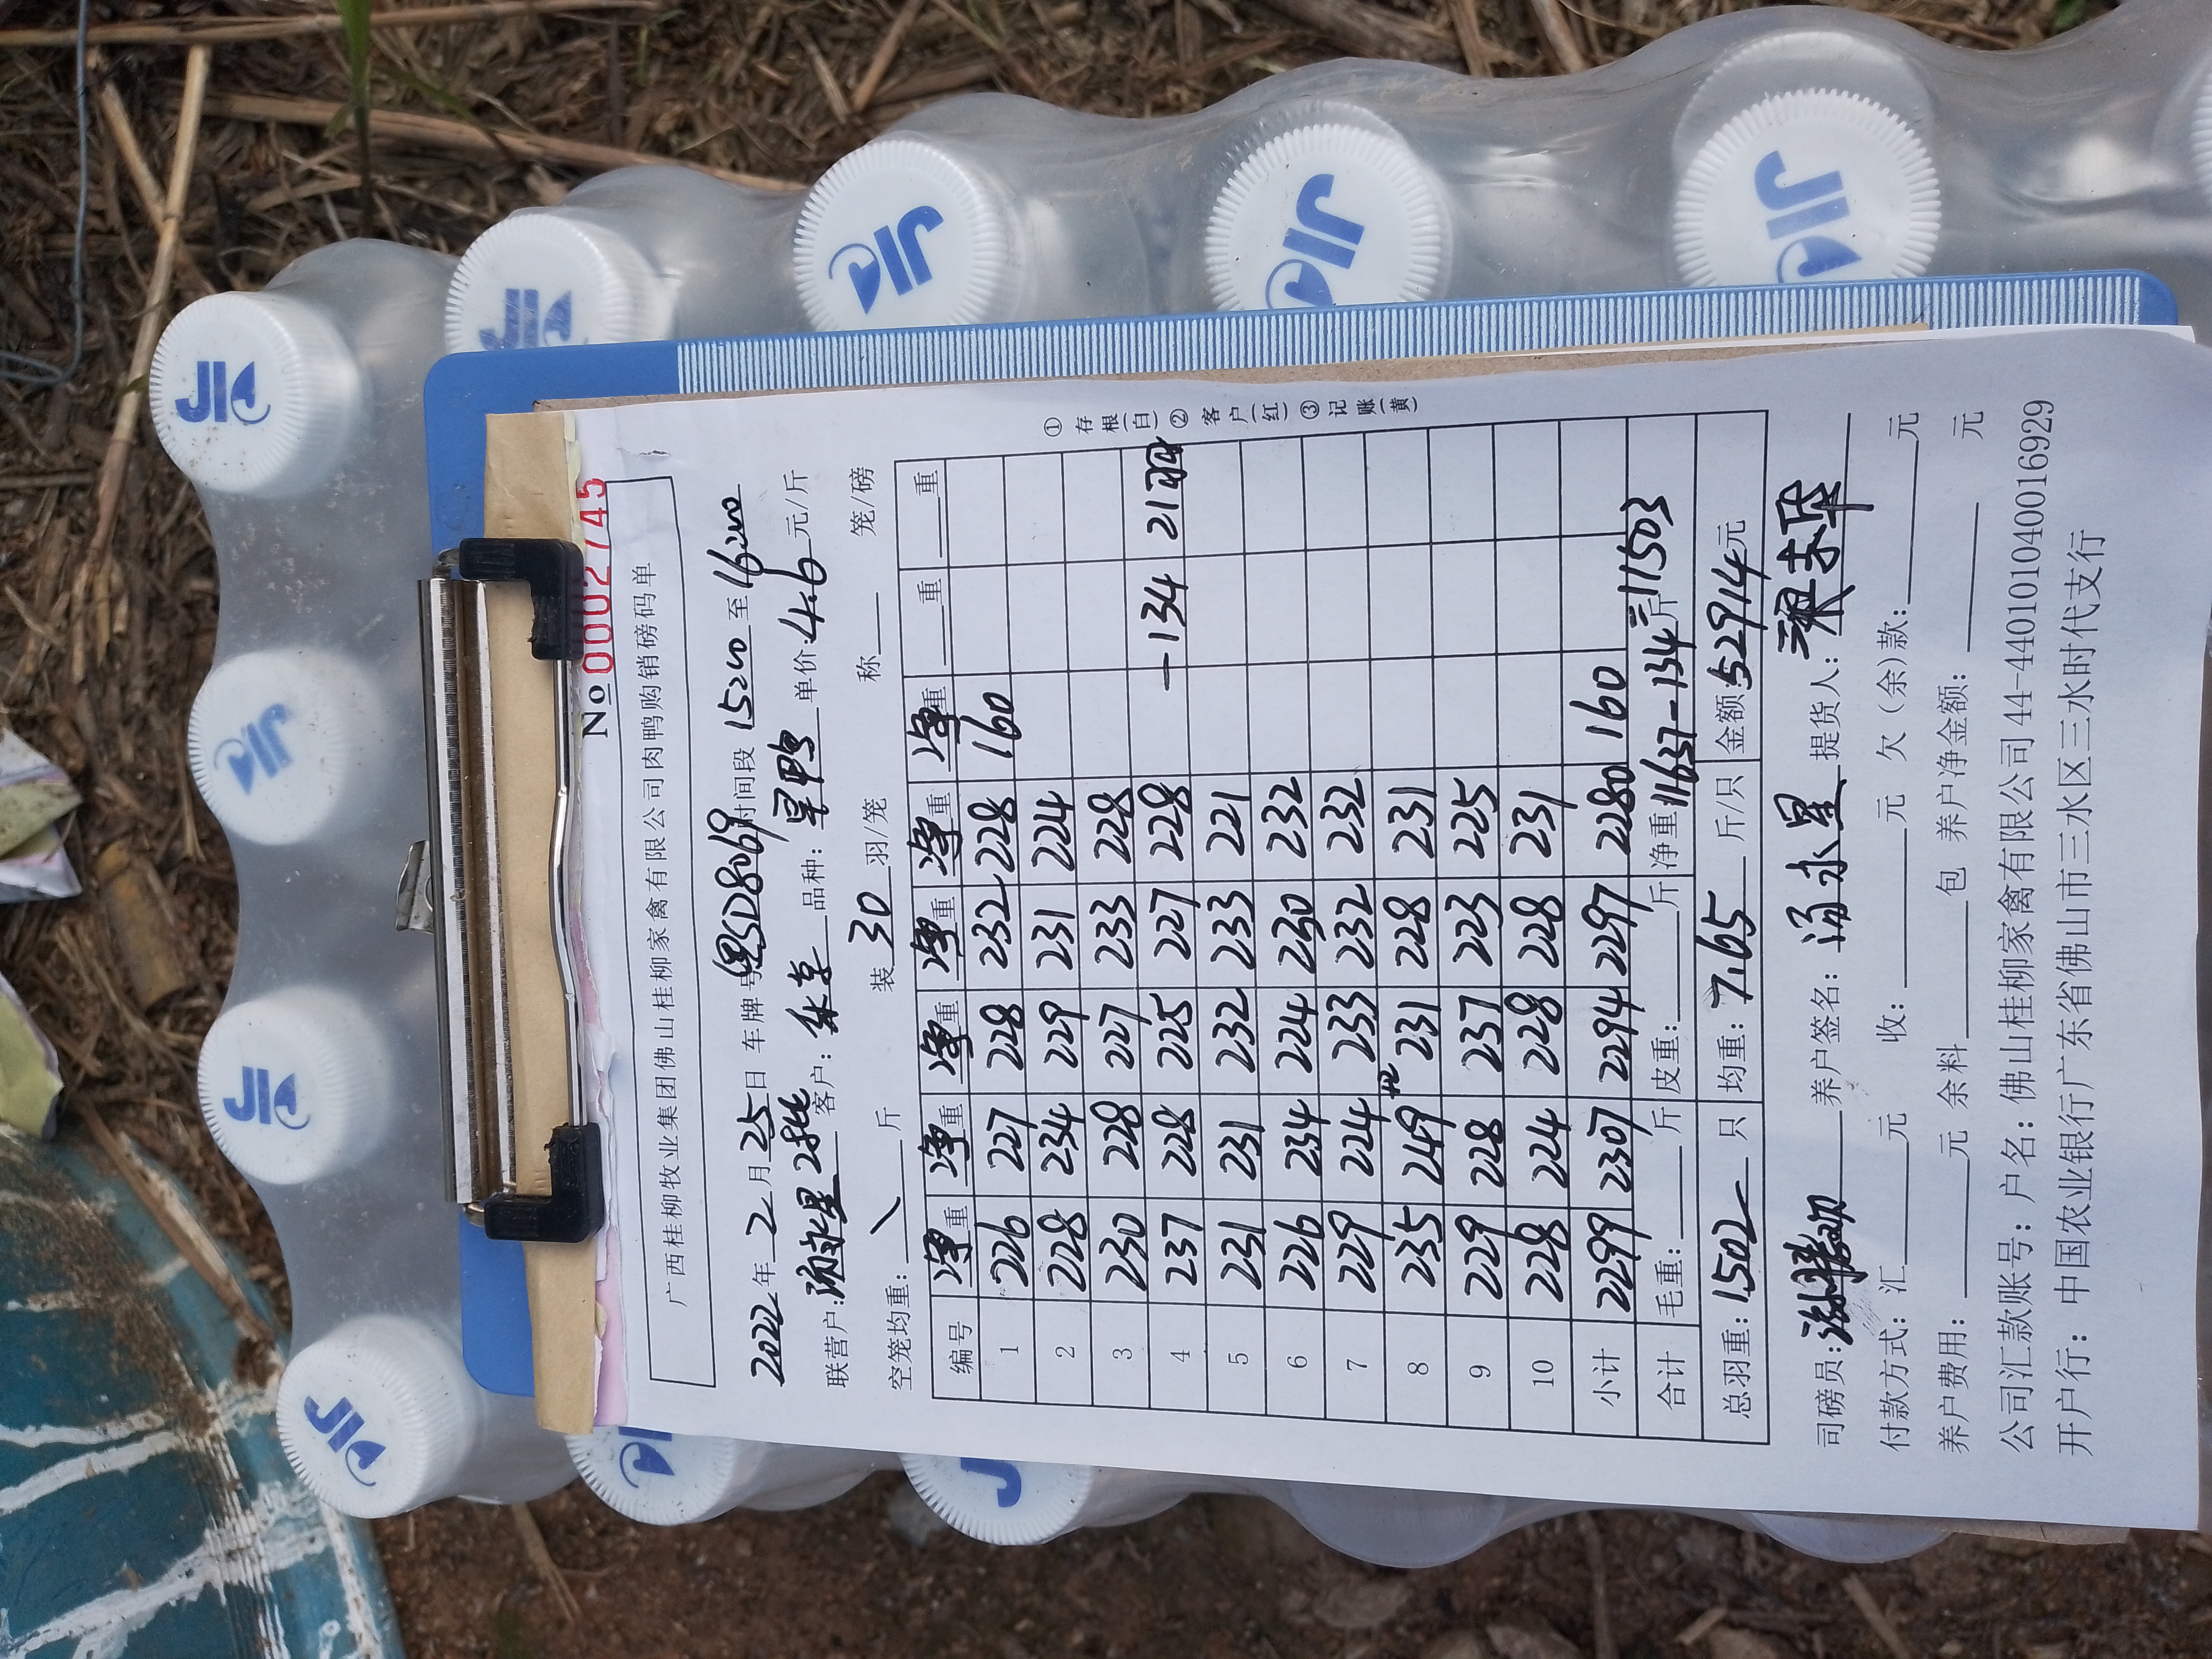 № 0002745
广西桂柳牧业集团佛山桂柳家禽有限公司肉鸭购销磅码单
2022年2月25日 车牌号 粤SD8069 时间段 15:20 至 16:00
联营户: 汤永星2批 客户: 品种: 旱鸭 单价 4.6 元/斤
空笼均重: \ 斤 装 30 羽/笼 称 笼/磅
编号 净重 净重 净重 净重 净重 净重 重 重
1 226 227 228 232 228 160
2 228 234 229 231 224
3 230 228 227 233 228
4 237 228 225 227 228 -134 21羽
5 231 231 232 233 221
6 226 234 224 230 232
7 229 224 233 232 232
8 235 249 231 228 231
9 229 228 237 223 225
10 228 224 228 228 231
小计 2299 2307 2294 2297 2280 160
合计 毛重: 斤 皮重: 斤 净重 11637-134=11503 斤
总羽重: 1502 只 均重: 7.65 斤/只 金额: 52914元
①存根(白)②客户(红)③记账(黄)
司磅员: 养户签名: 汤永星 提货人:
付款方式: 汇 元 收: 元 欠(余)款: 元
养户费用: 元 余料 包 养户净金额: 元
公司汇款账号: 户名: 佛山桂柳家禽有限公司44-440101040016929
开户行: 中国农业银行广东省佛山市三水区三水时代支行